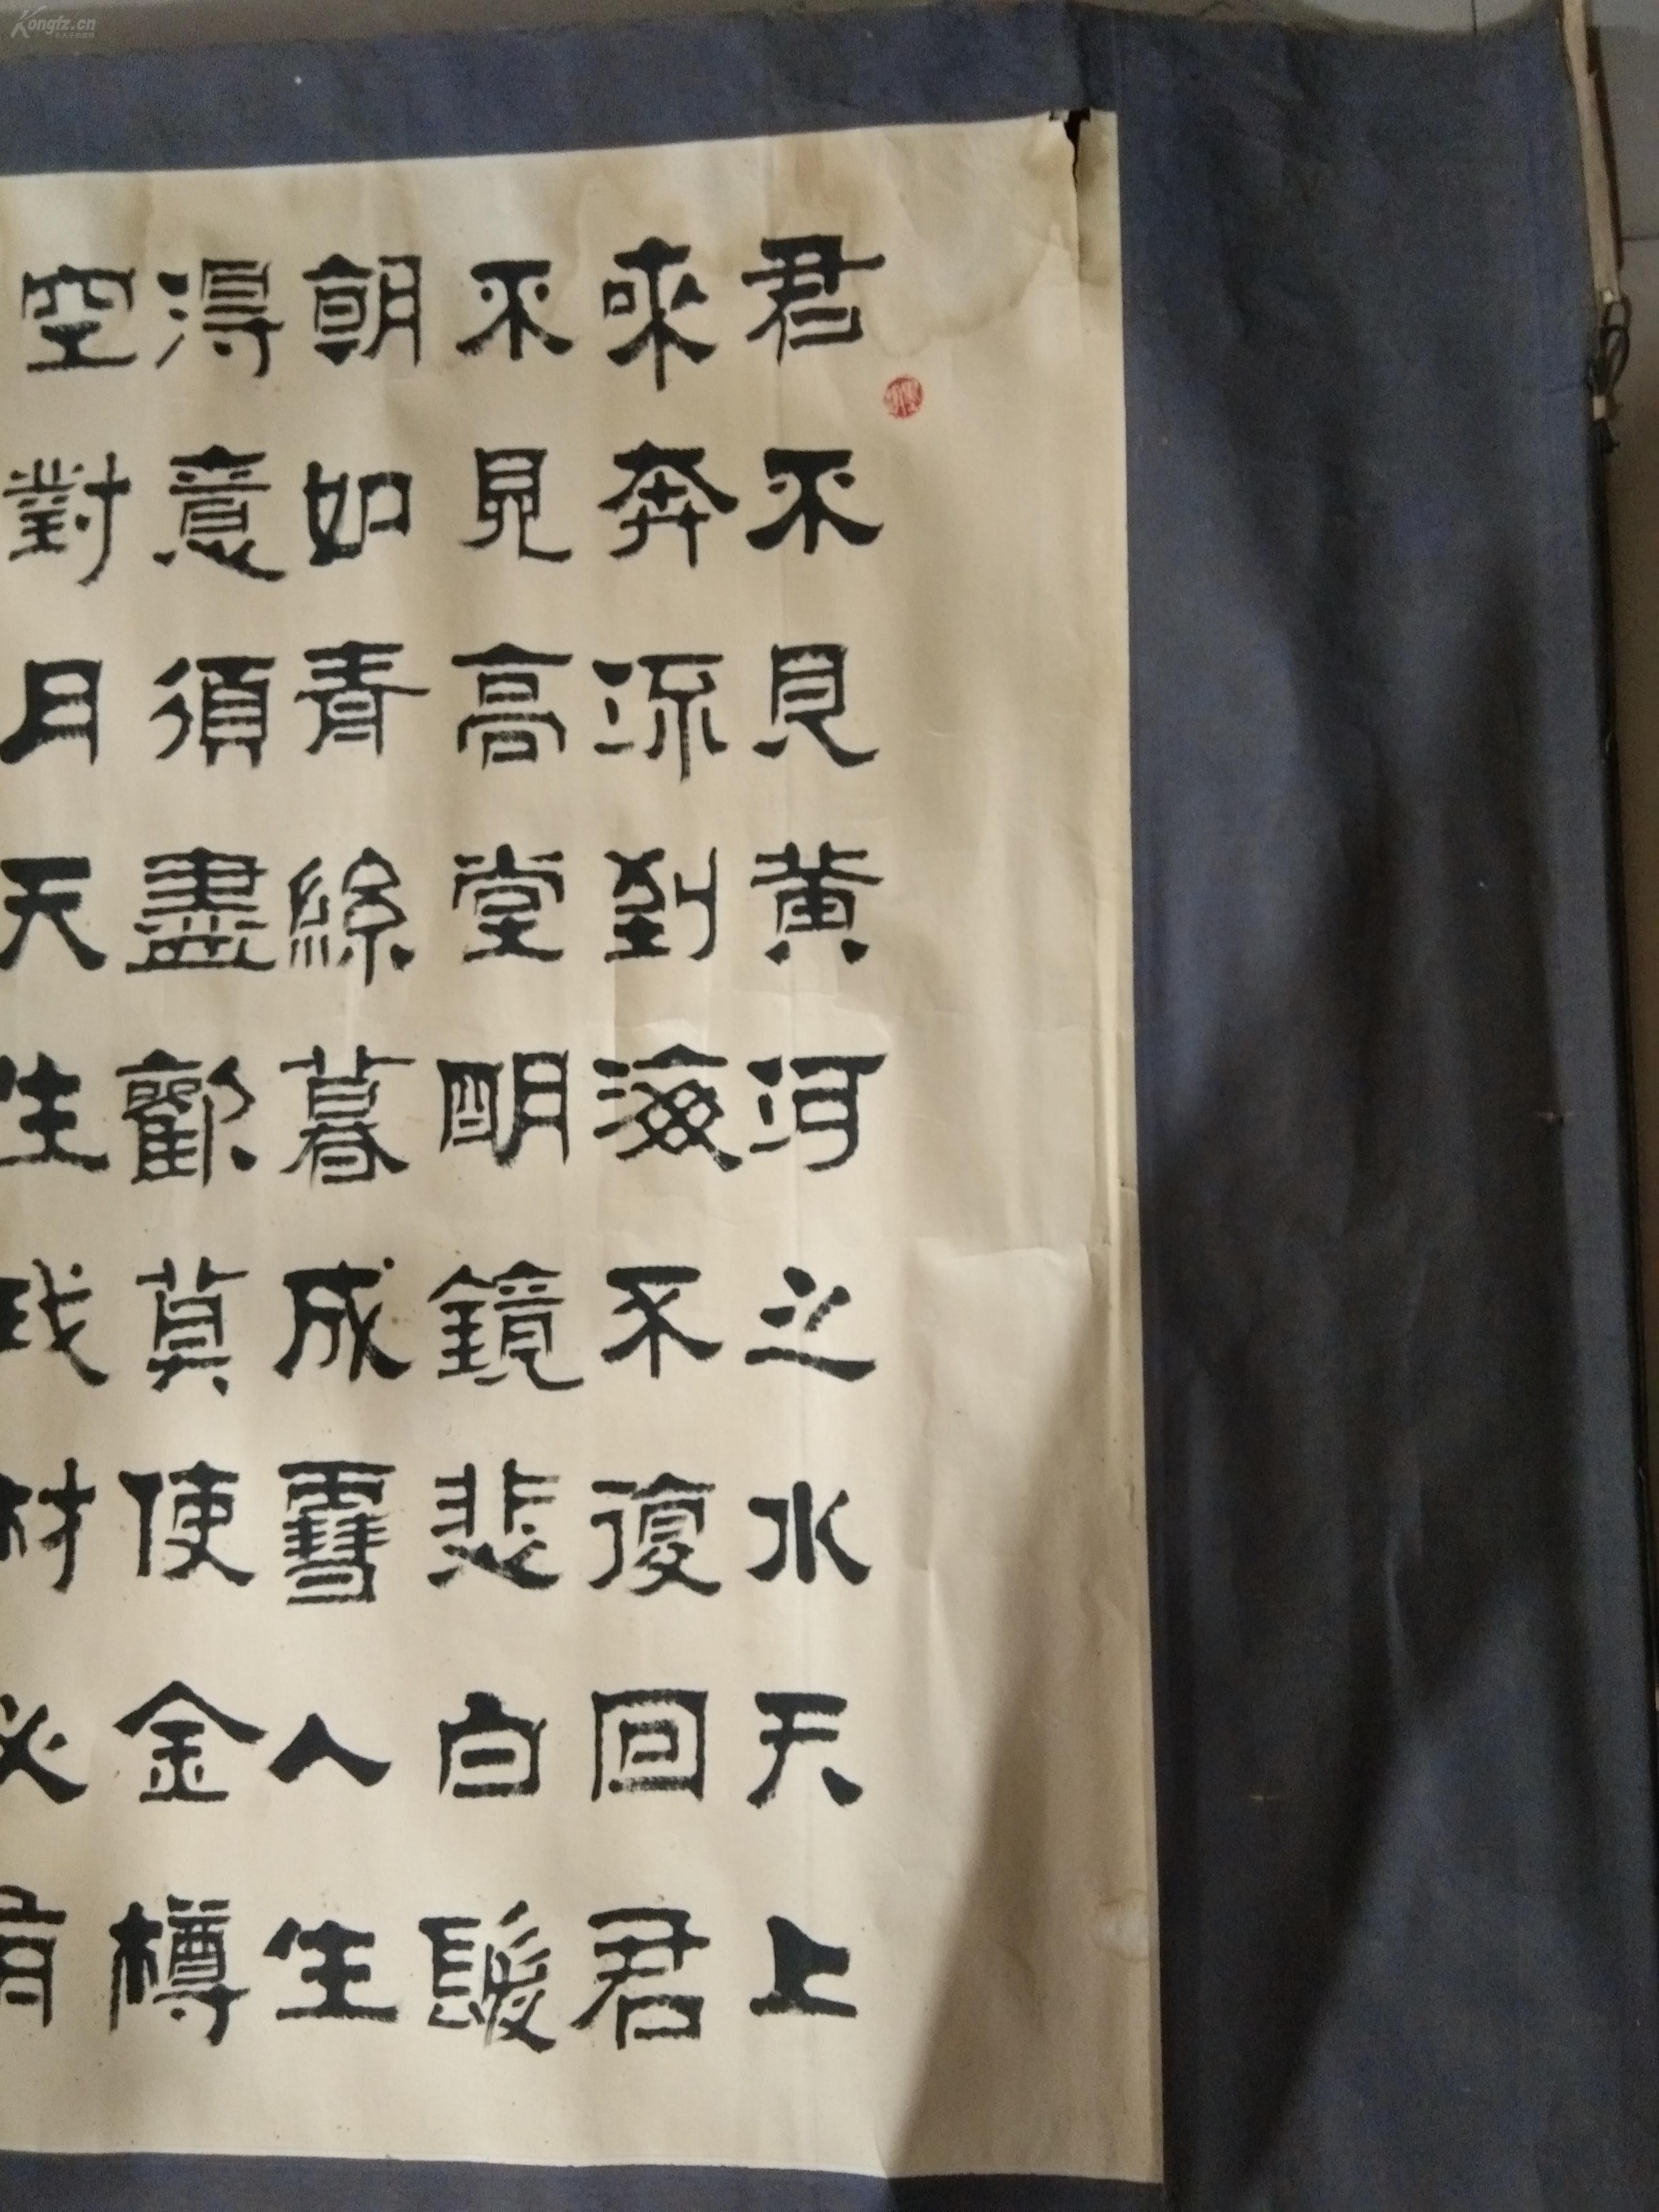 君不見黃河之水天上
來奔流到海不復回君
不見高堂明鏡悲白髮
朝如青絲暮成雪人生
得意須盡歡莫使金樽
空對月天生我材必有
Kongfz.cn